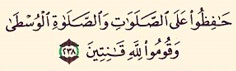 حَٰفِظُوا۟ عَلَى ٱلصَّلَوَٰتِ وَٱلصَّلَوٰةِ ٱلْوُسْطَىٰ
وَقُومُوا۟ لِلَّهِ قَٰنِتِينَ ٢٣٨